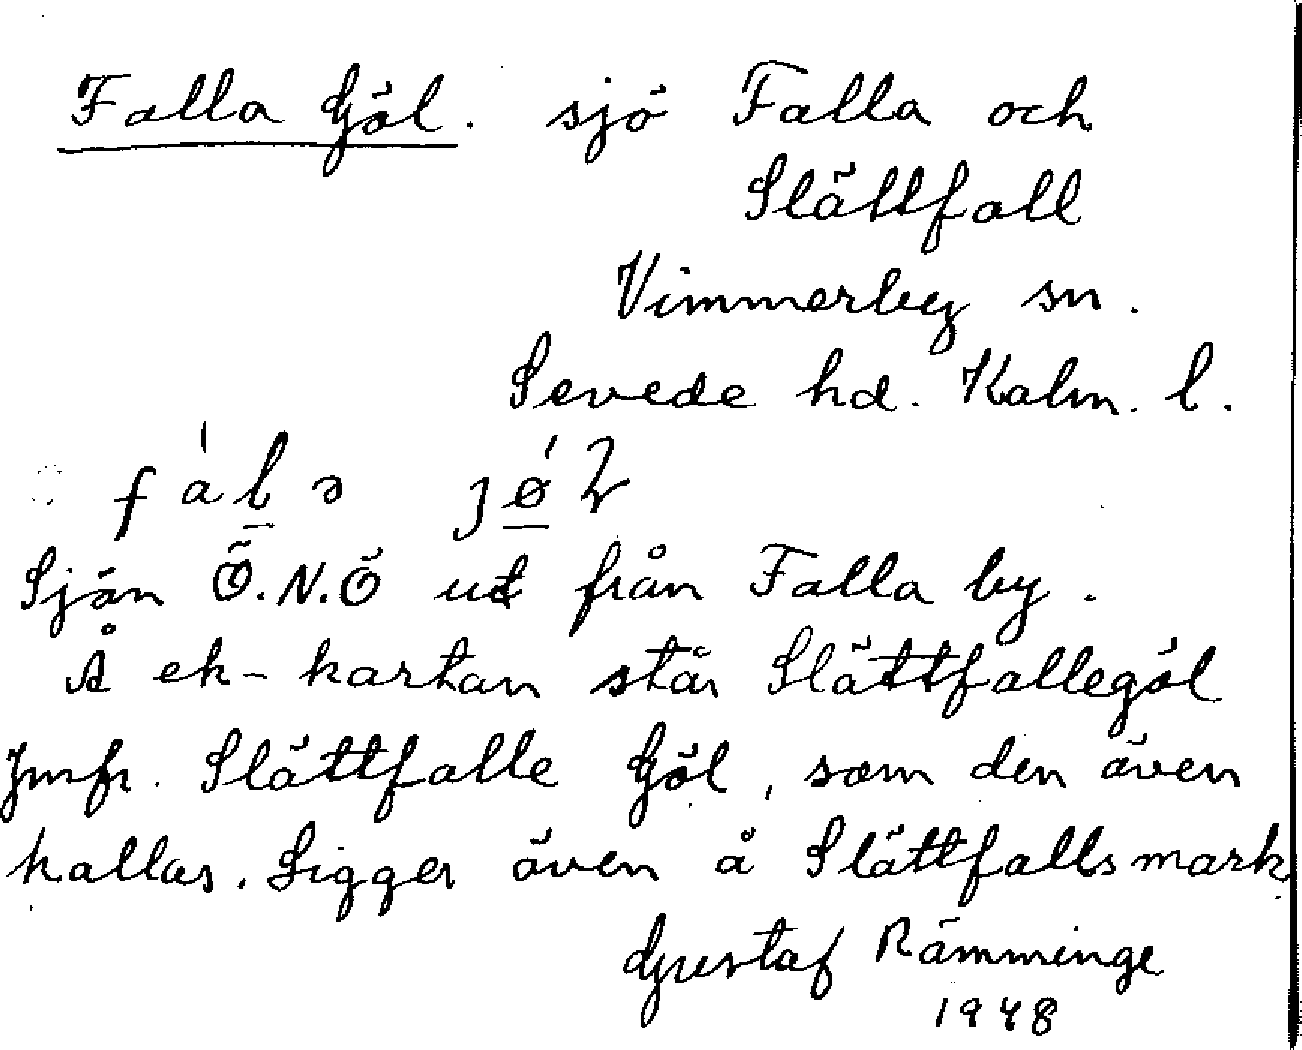 Falla Göl. sjö Falla och
Slättfall
Vimmerby sn.
Sevede hd. Kalm. l.
Sjön Ö.N.Ö ut från Falla by.
Å ek-kartan står Slättfallegöl
Jmfr. Slättfalle Göl, som den även
kallas. Ligger även å Slättfalls mark
Gustaf Rämminge
1948